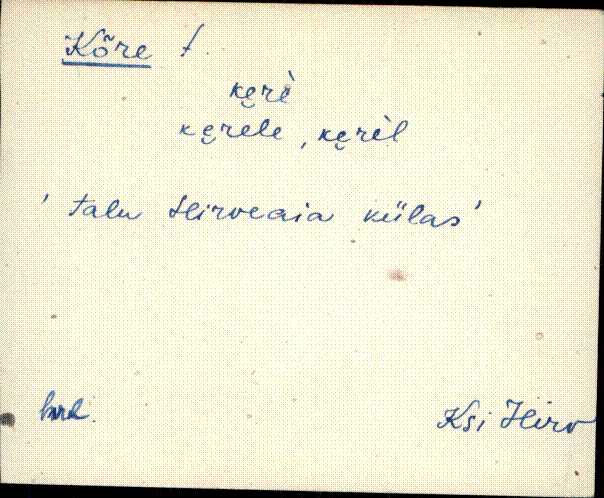 Kõre t.
kęrè
kęrele, kęrèl
' talu Hirveaia külas '
Ksi Hirv